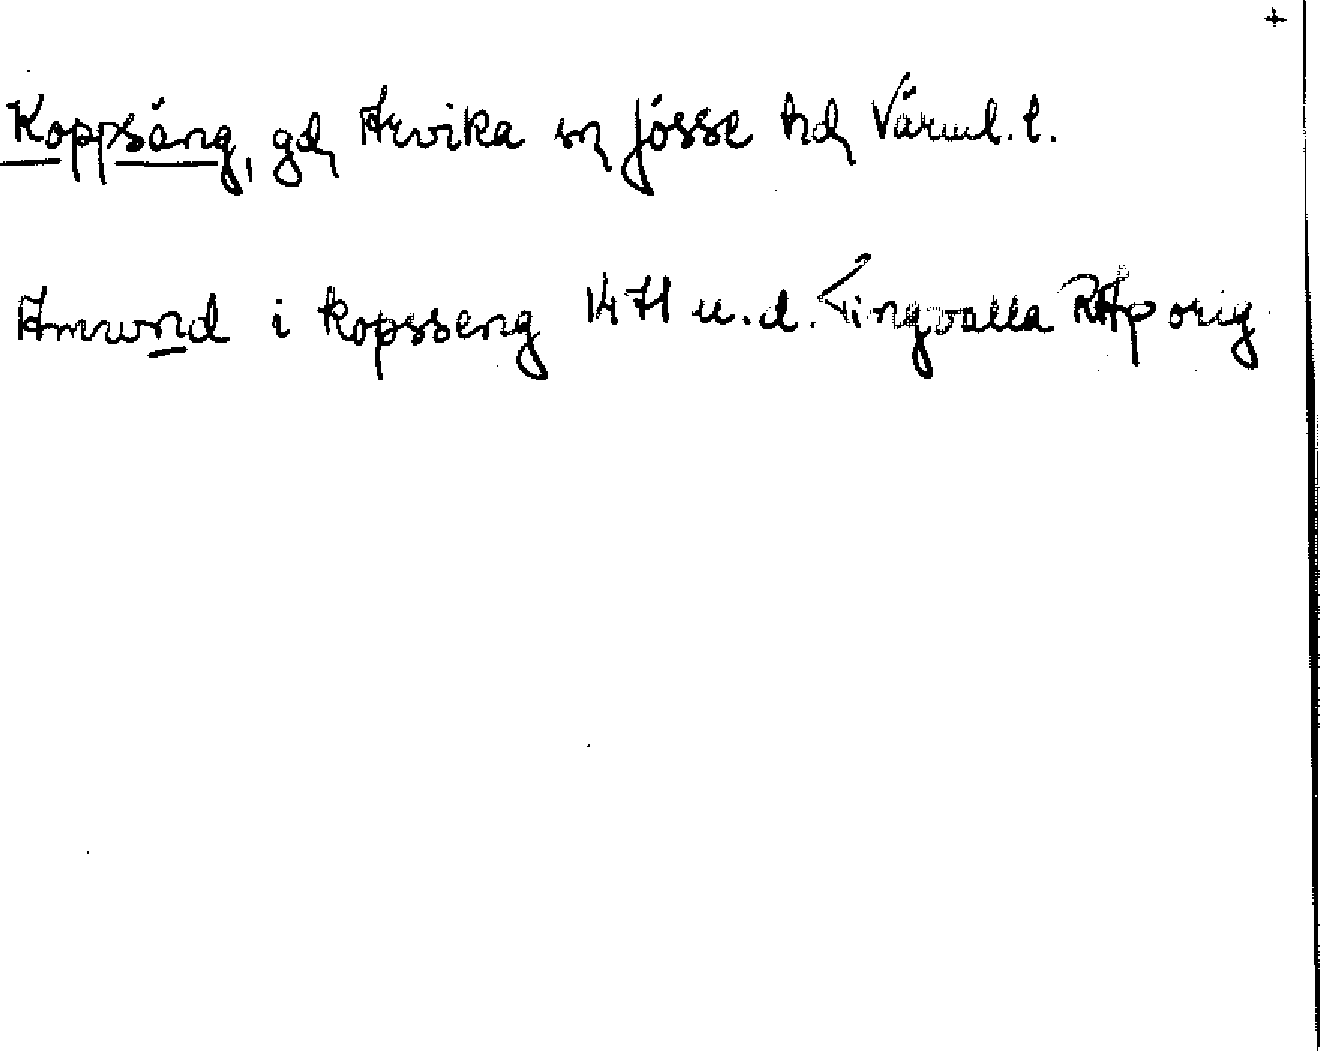 +
Koppsäng, gd, Arvika sn Jösse hd, Värml. l.
Amund i kopsseng 1471 u.d. Tingvalla RAp orig